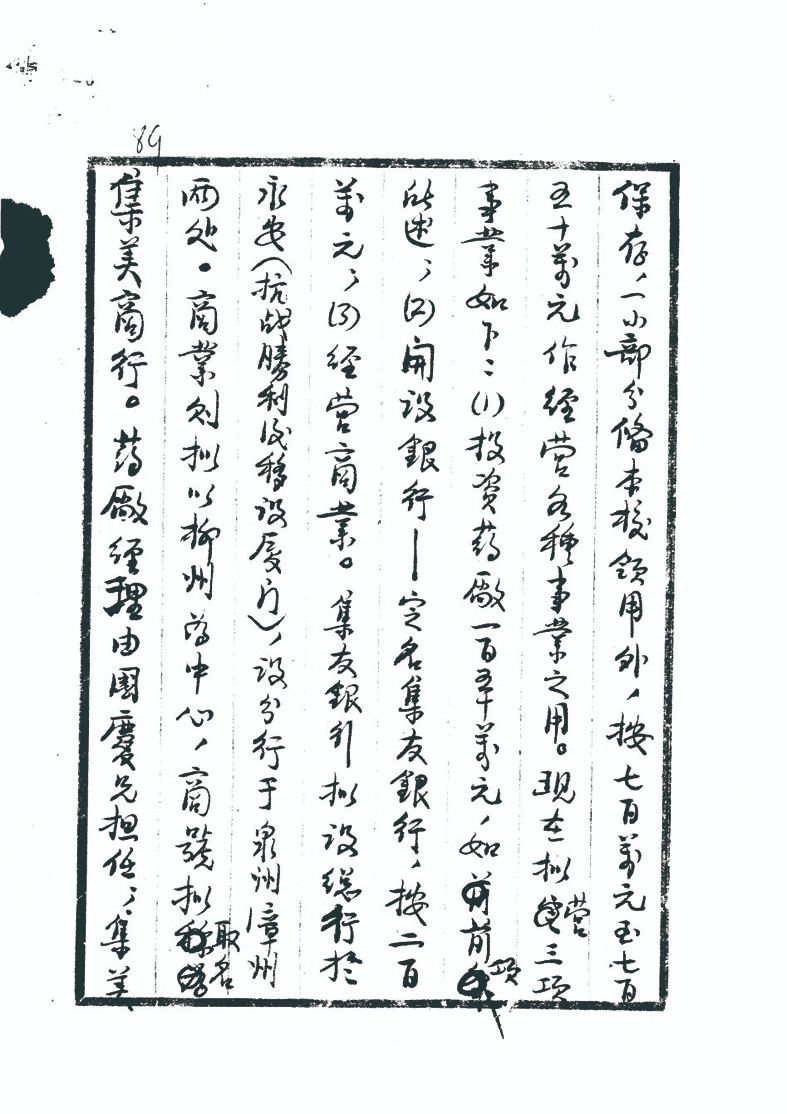 89
保存，一小部分備本校領用外，按七百萬元至七百
五十萬元作經營各種事業之用。現在拟營三項
事業如下：(1)投資葯廠一百五十萬元，如前項
所述；(2)開設銀行—定名集友銀行，按二百
萬元；(3)經营商業。集友銀行拟设總行於
永安（抗战勝利後移设厦门），设分行于泉州漳州
兩处。商業则拟以柳州為中心，商號拟取名
集美商行。葯廠經理由國慶兄担任；集美